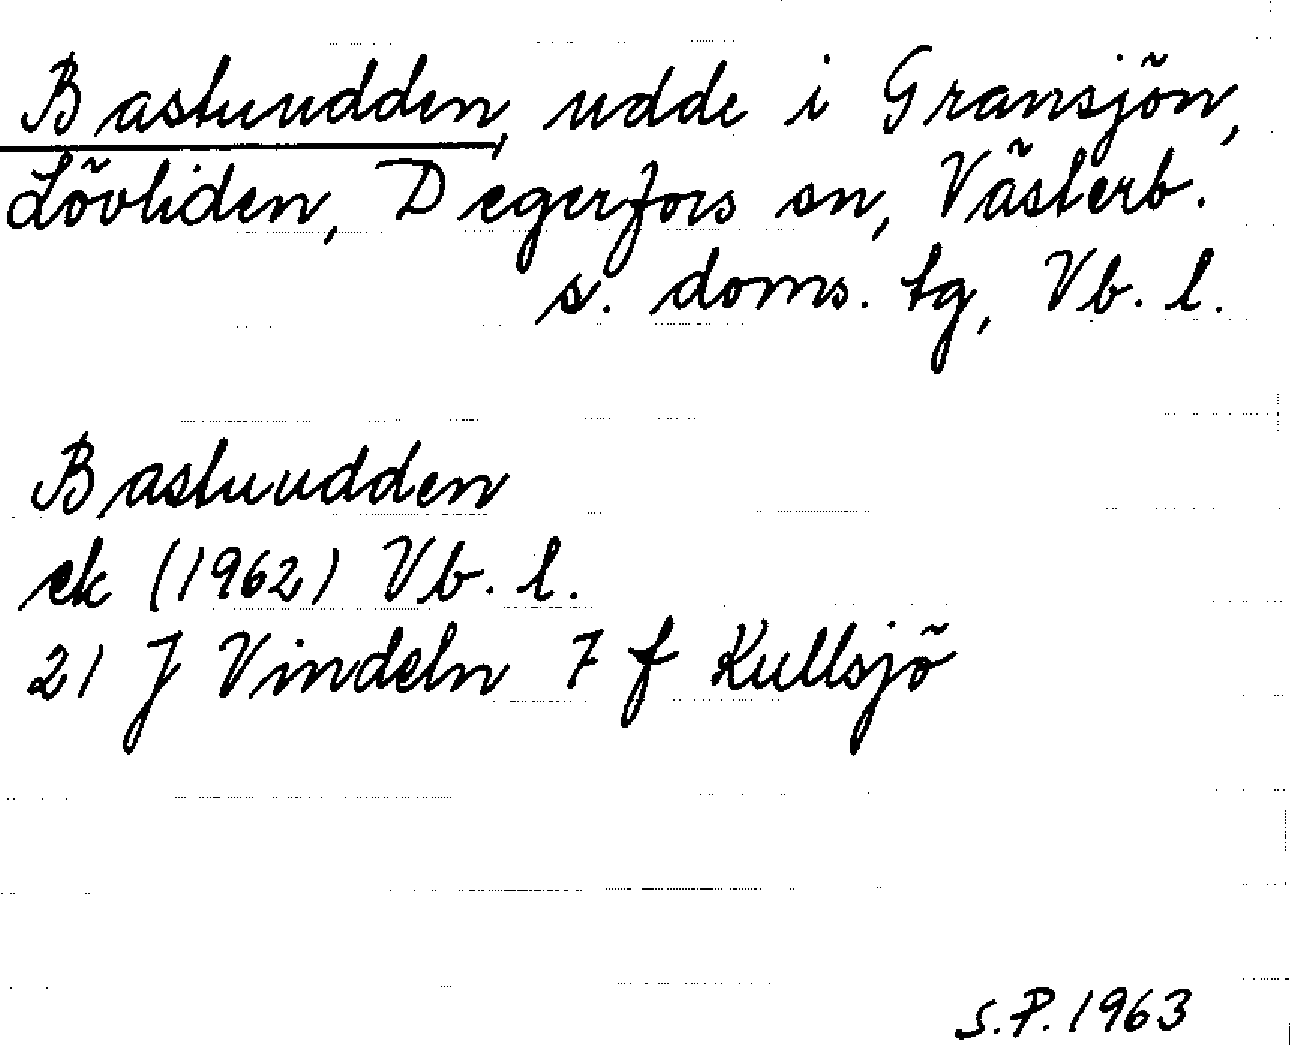 Bastuudden, udde i Gransjön,
Lövliden, Degerfors sn, Västerb.
s. doms. tg, Vb. l.
Bastuudden
ek (1962) Vb. l.
21 J Vindeln 7 f Kullsjö
S.P. 1963